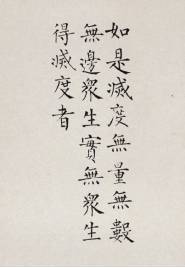 如是滅度無量無數
無邊眾生實無眾生
得滅度者